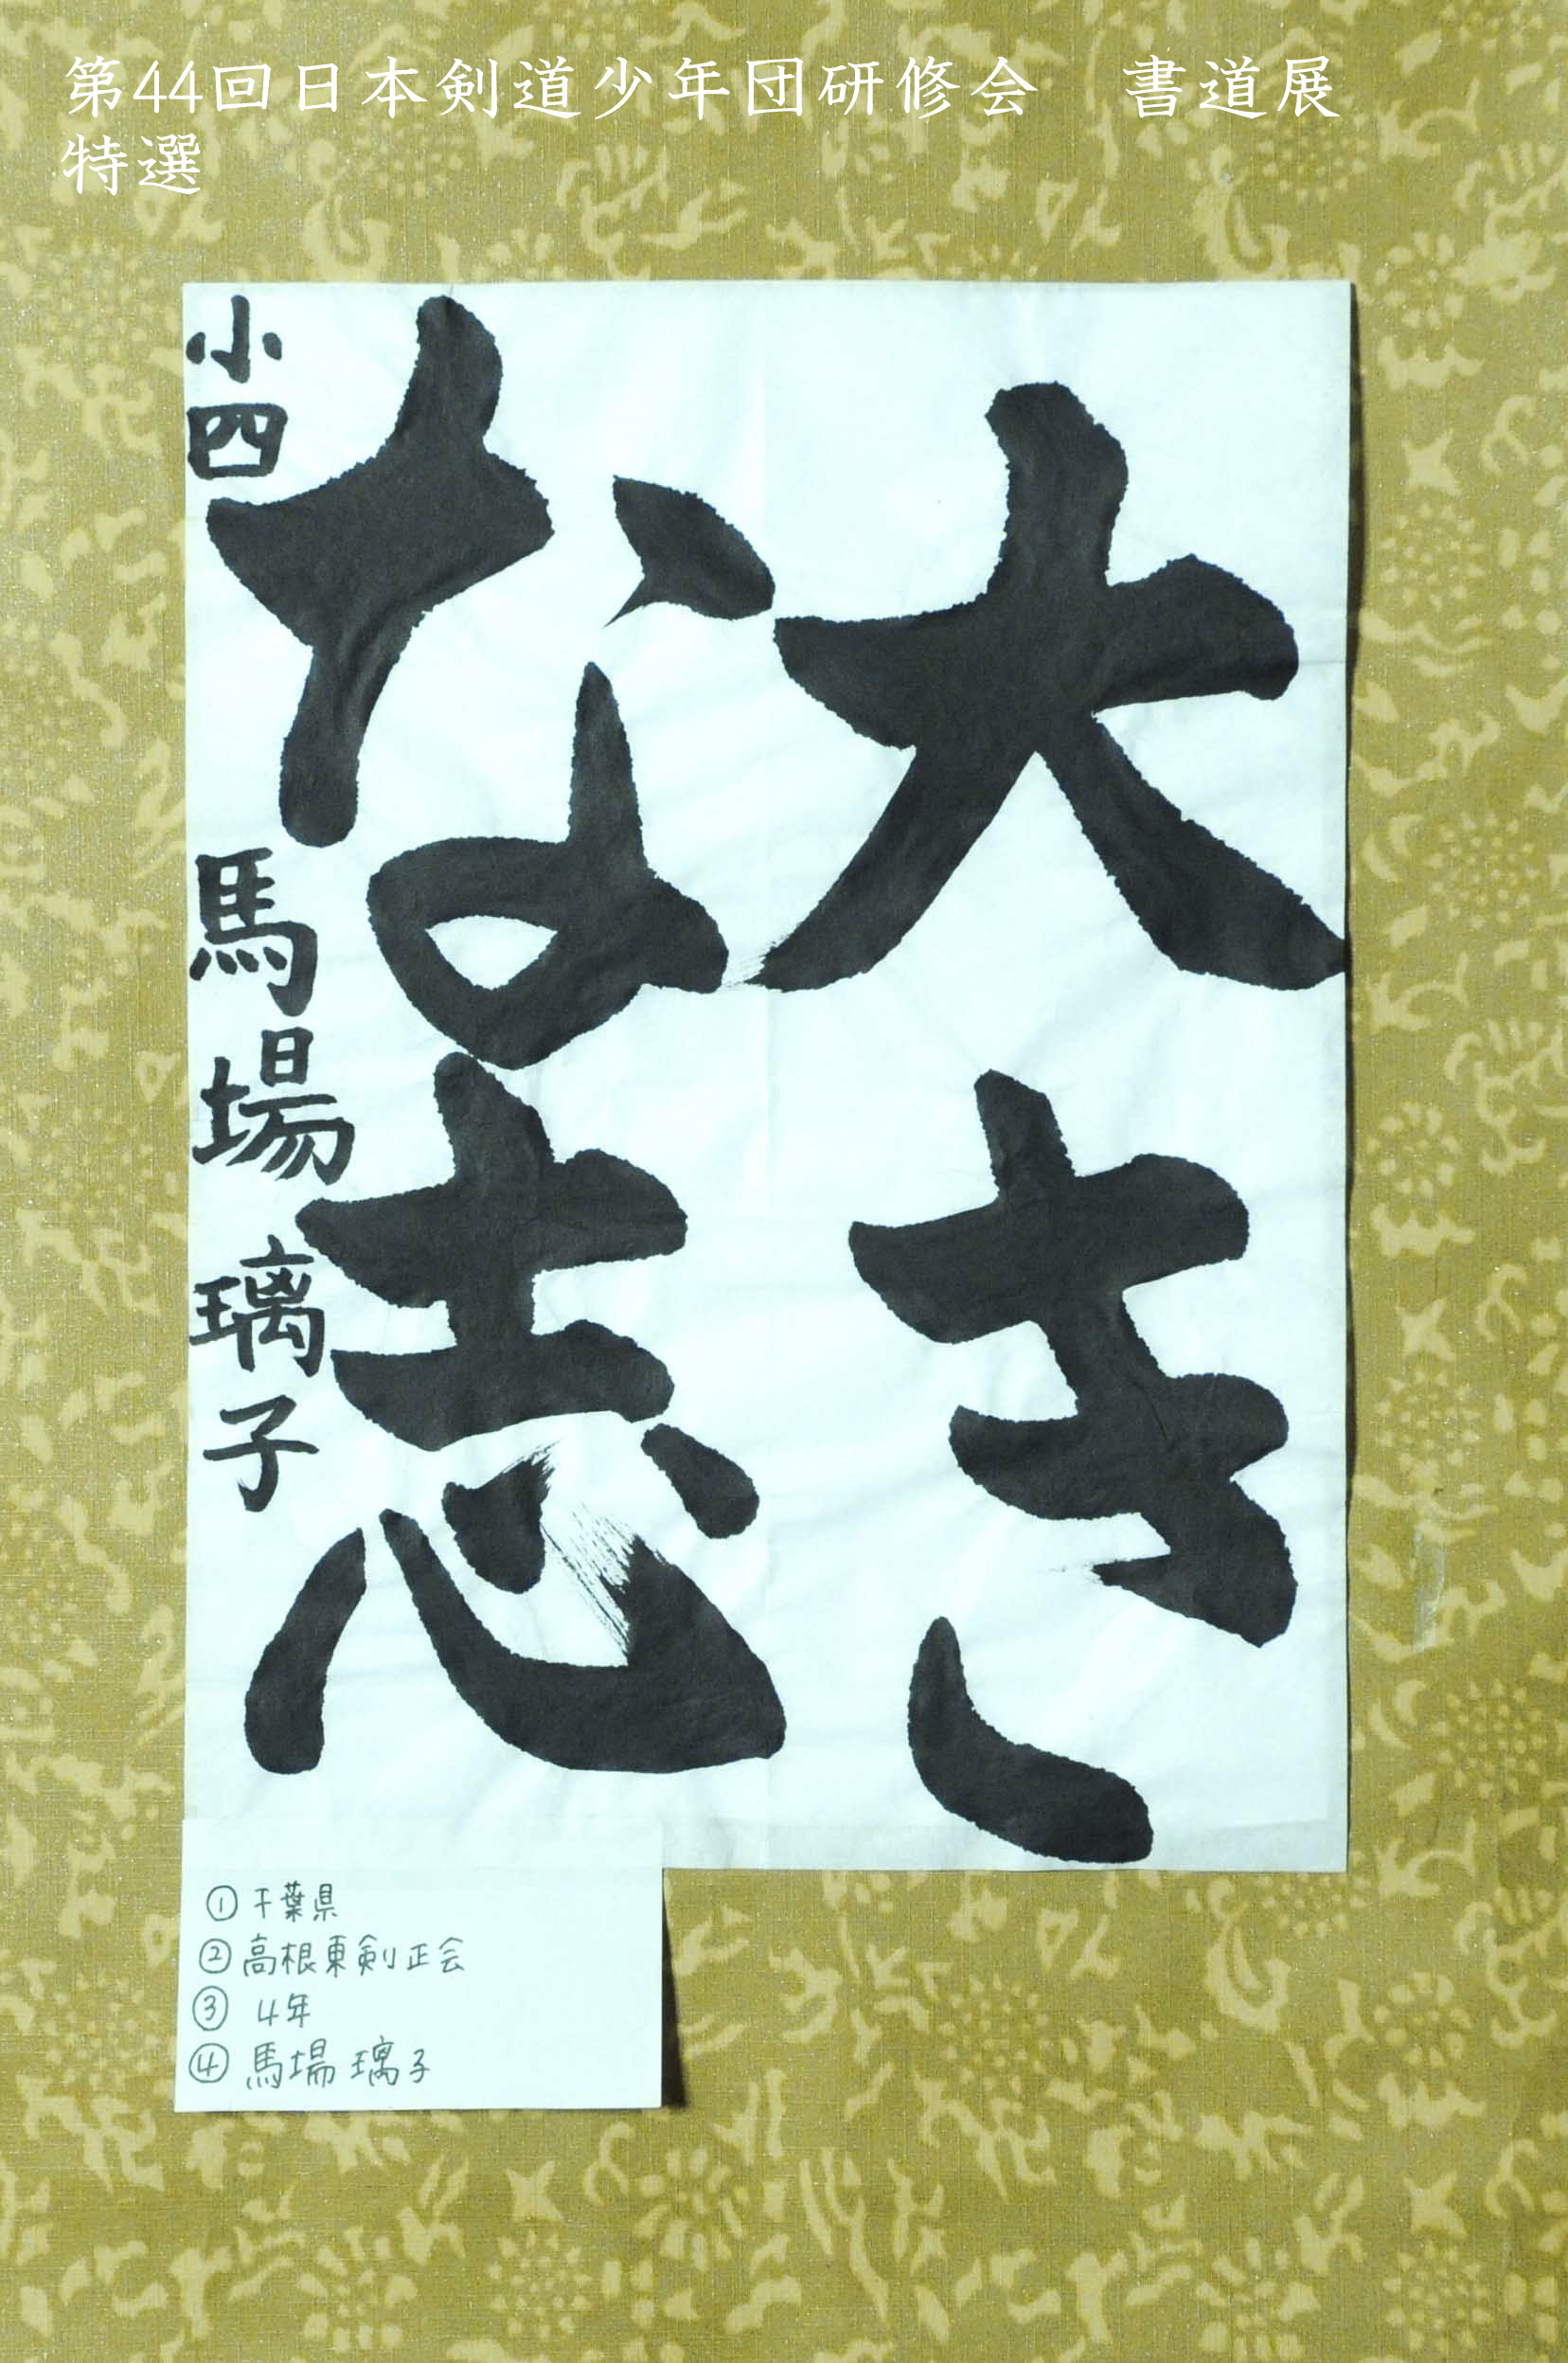 第44回日本剣道少年団研修会　書道展
特選
大き
な志
小四 馬場 璃子
① 千葉県
② 高根東剣正会
③ 4年
④ 馬場 璃子